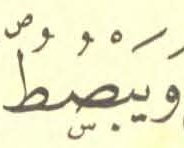 وَيَبْصُۣطُ ص